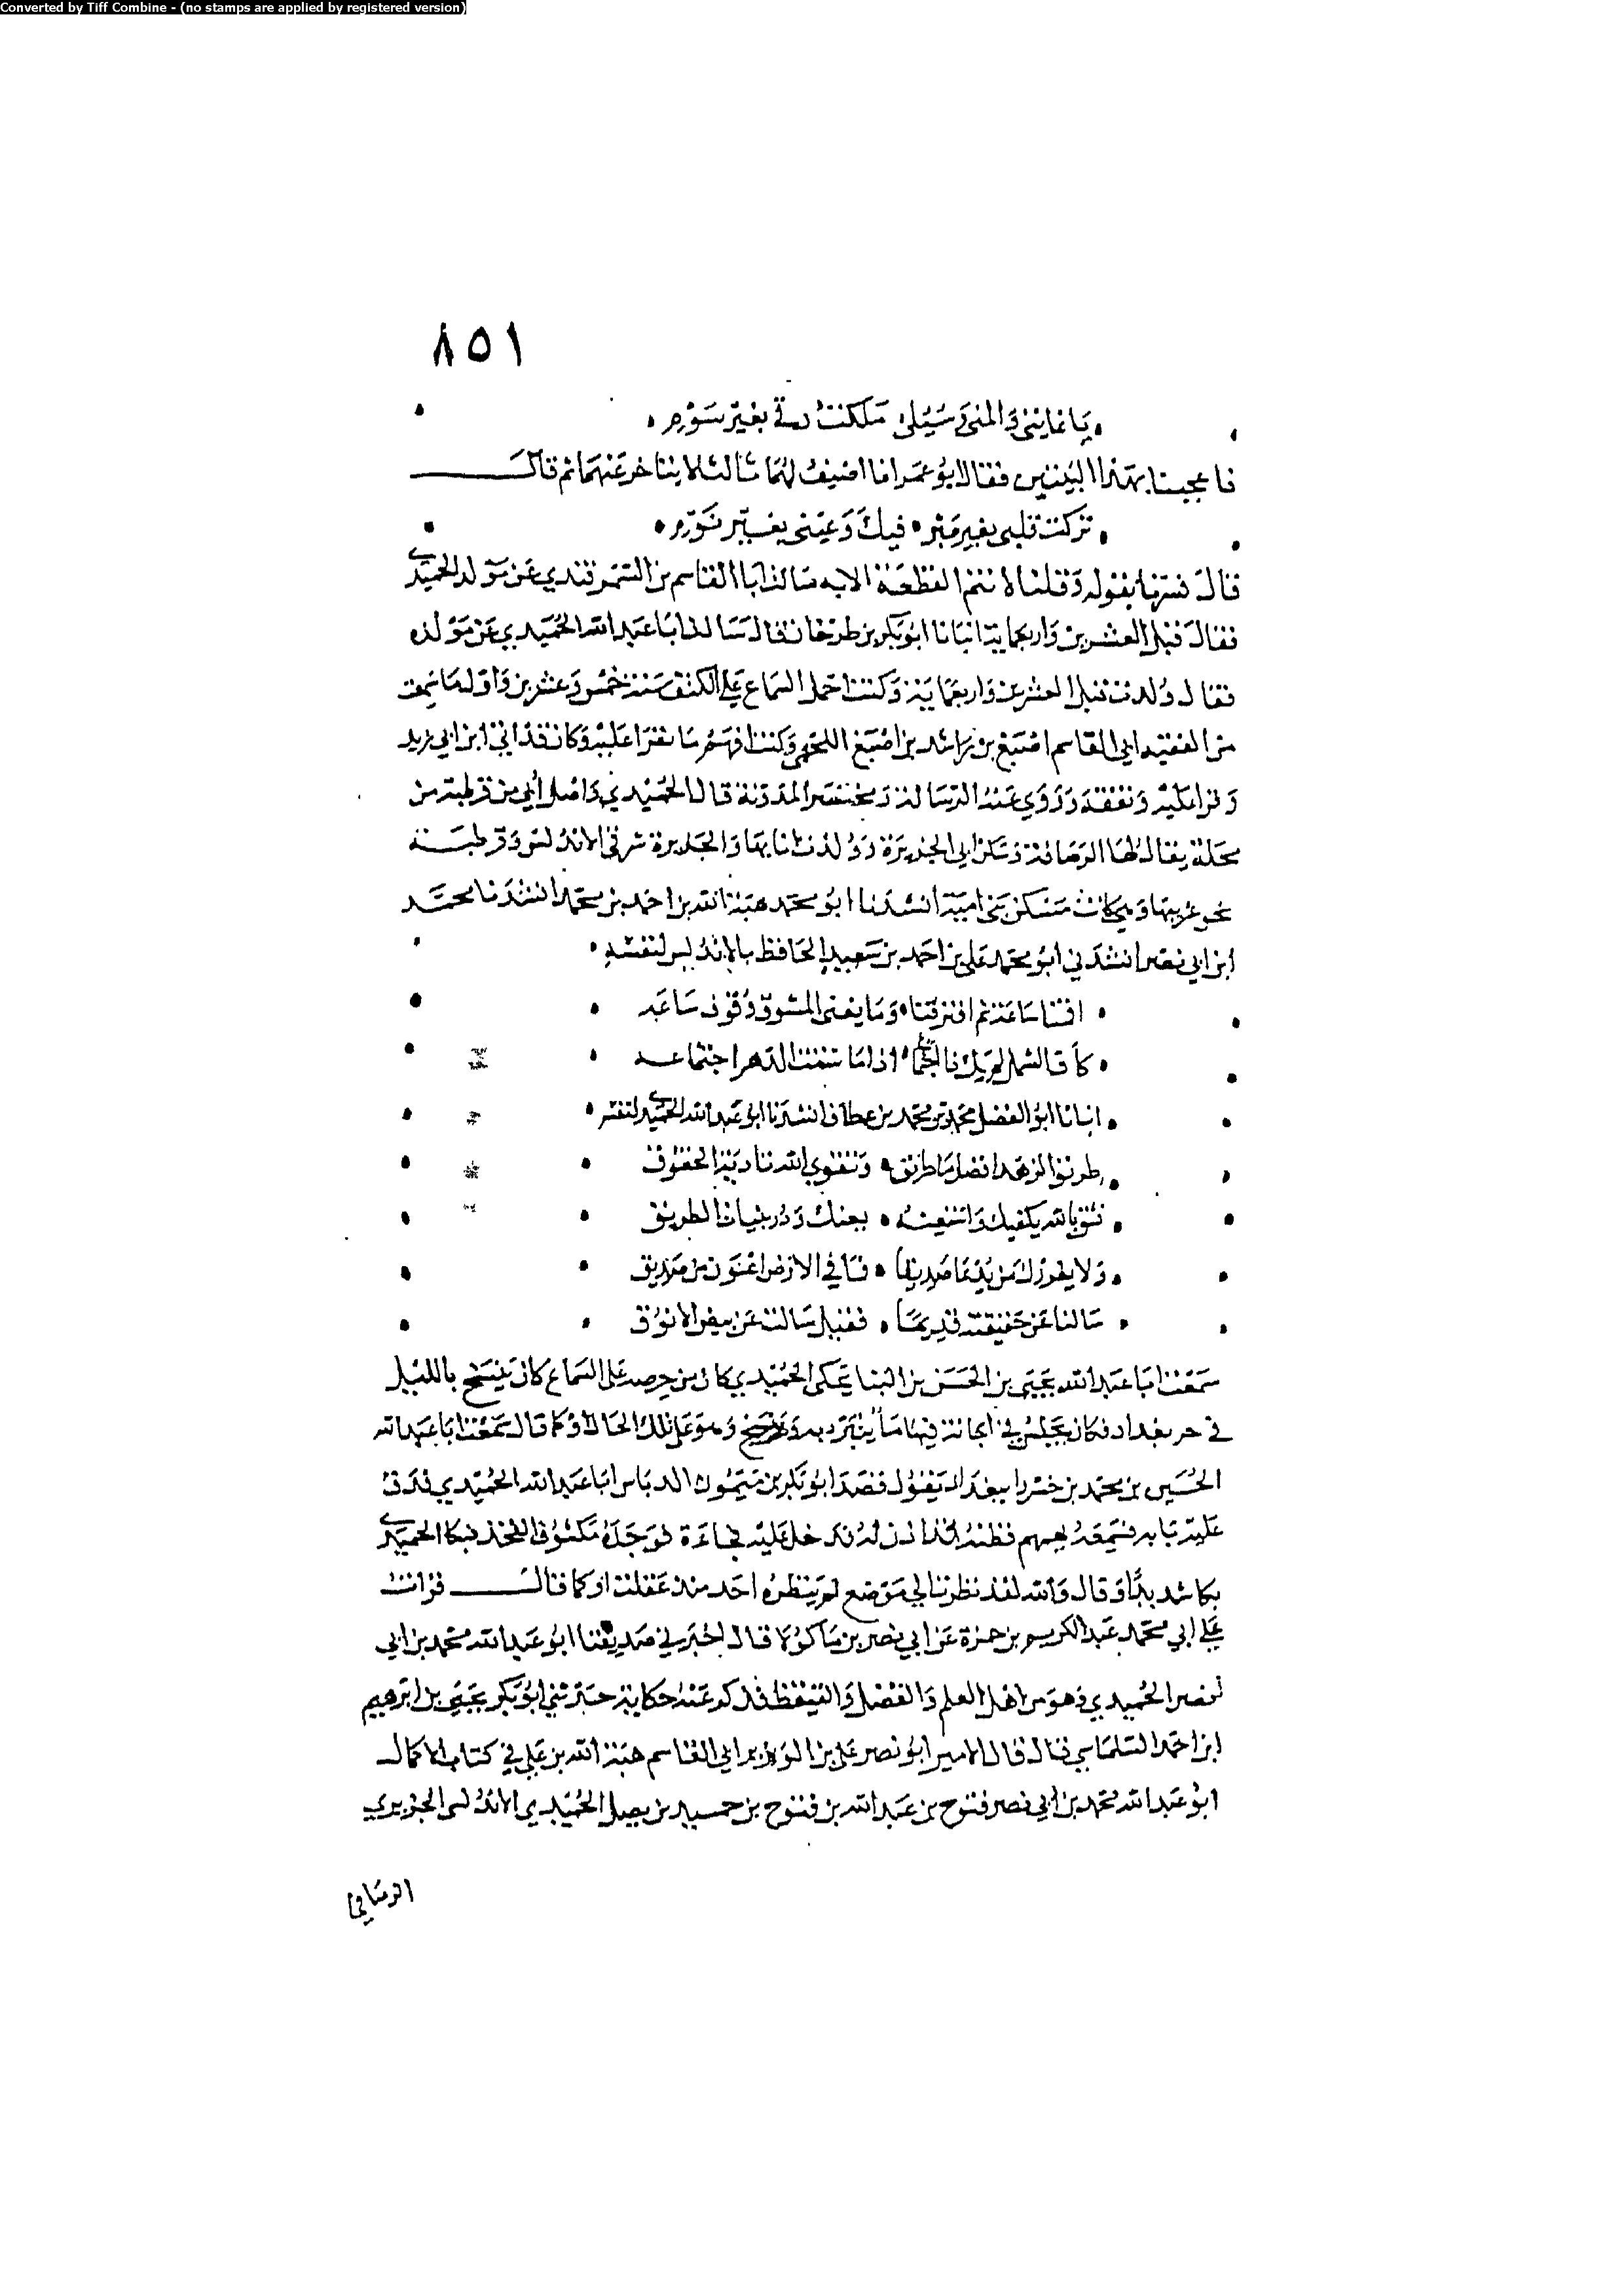 Converted by Tiff Combine - (no stamps are applied by registered version)
٨٥١
يا غايتى والمنى وسؤلى ملكت رقى بغير سوم
فاعجبنا بهذا البيتين فقال ابو عمر انا اضيف لهما ثالثا لا يتاخر عنهما ثم قال
تركت قلبى بغير صبر فيك وعينى بغير نوم
قال فسرنا بقوله وقلنا لا تتم القطعة الا به سالت ابا القاسم بن السمرقندي عن مولد الحميدي
فقال قبل العشرين واربعماية انبانا ابو بكر بن طرخان قال سالت ابا عبد الله الحميدي عن مولده
فقال ولدت قبل العشرين واربعماية وكنت احمل السماع على الكتف سنة خمس وعشرين واول ما سمعت
من الفقيه ابى القاسم اصبغ بن راشد بن اصبغ اللخمى وكنت افهم ما يقرا عليه وكان قد اتى ابن ابى زيد
وقرا عليه وتفقه وروي عنه الرسالة ومختصر المدونة قال الحميدي واصل ابي من قرطبة من
محلة يقال لها الرصافة وسكن ابى الجزيرة وولدت انا بها والجزيرة شرقى الاندلس وقرطبة
غربيها وبها كانت مسكن بنى امية انشدنا ابو محمد هبة الله بن احمد بن محمد انشدنا محمد
ابن ابى نصر انشدني ابو محمد على بن احمد بن سعيد الحافظ بالاندلس لنفسه
اقمنا ساعة ثم افترقنا وما يغنى المشوق وقوف ساعه
كان الشمل لم يك ذا اجتماع اذا ما شتت الدهر اجتماعه
انبانا ابو الفضل محمد بن محمد بن عطاف انشدنا ابو عبد الله الحميدي لنفسه
طريق الزهد افضل ما طريق وتقوي الله تادية الحقوق
فثق بالله يكفيك واستعنه يعنك ودر بنيات الطريق
ولا يغررك من يدعا صديقا فما في الارض اعوز من صديق
سالنا عن حقيقته قديما فقيل سالت عن بيض الانوق
سمعت ابا عبد الله يحيى بن الحسن بن البنا يحكى الحميدي كان من حرصه على السماع كان ينسخ بالليل
في حر بغداد فكان يجلس في اجانة فيها ما يتبرد به وينسخ وهو على تلك الحال او كما قال سمعت ابا عبد الله
الحسين بن محمد بن خسرو ببغداد يقول قصد ابو بكر بن ميمون الدباس ابا عبد الله الحميدي فدق
عليه بابه فسمعه يهمهم فظنه قد اذن له فدخل عليه فجاءة فوجده مكشوف الفخذ فبكا الحميدي
بكا شديدا وقال والله لقد نظرت الي موضع لم ينظره احد منذ عقلت او كما قال قرات
على ابي محمد عبد الكريم بن حمزة عن ابي نصر بن ماكولا قال اخبرني صديقنا ابو عبد الله محمد بن ابى
نصر الحميدي وهو من اهل العلم والفضل والتيقظ فذكر عنه حكاية حدثني ابو بكر يحيى بن ابرهيم
ابن احمد السلماسي قال قال الامير ابو نصر على بن الوزير ابي القاسم هبة الله بن علي في كتاب الاكمال
ابو عبد الله محمد بن ابي نصر فتوح بن عبد الله بن فتوح بن حميد بن يصل الحميدي الاندلسى الجزيري
الرصافي